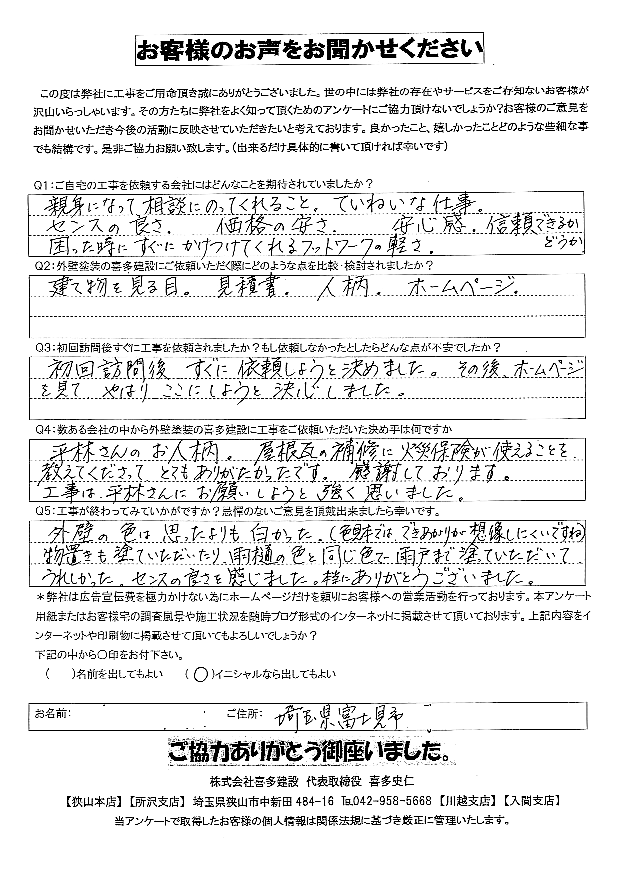 お客様のお声をお聞かせください
この度は弊社に工事をご用命頂き誠にありがとうございました。世の中には弊社の存在やサービスをご存知ないお客様が
沢山いらっしゃいます。その方たちに弊社をよく知って頂くためのアンケートにご協力頂けないでしょうか?お客様のご意見を
お聞かせいただき今後の活動に反映させていただきたいと考えております。良かったこと、嬉しかったことどのような些細な事
でも結構です。是非ご協力お願い致します。(出来るだけ具体的に書いて頂ければ幸いです)
Q1:ご自宅の工事を依頼する会社にはどんなことを期待されていましたか?
親身になって相談にのってくれること。ていねいな仕事。
センスの良さ. 価格の安さ. 安心感.信頼できるか
どうか
困った時にすぐにかけつけてくれるフットワークの軽さ.
Q2:外壁塗装の喜多建設にご依頼いただく際にどのような点を比較・検討されましたか?
建て物を見る目。見積書。人柄。ホームページ。
Q3:初回訪問後すぐに工事を依頼されましたか?もし依頼しなかったとしたらどんな点が不安でしたか?
初回訪問後 すぐに依頼しようと決めました。その後、ホームページ
を見て やはりここにしようと決心しました。
Q4:数ある会社の中から外壁塗装の喜多建設に工事をご依頼いただいた決め手は何ですか
平林さんのお人柄。屋根瓦の補修に火災保険が使えることを
教えてくださって とてもありがたかったです。感謝しております。
工事は平林さんにお願いしようと強く思いました。
Q5:工事が終わってみていかがですか?忌憚のないご意見を頂戴出来ましたら幸いです。
外壁の色は思ったよりも白かった。(色見本では できあがりが想像しにくいですね)
物置きも塗っていただいたり、雨樋の色と同じ色で雨戸まで塗っていただいて
うれしかった。センスの良さを感じました。ありがとうございました。
*弊社は広告宣伝費を極力かけない為にホームページだけを頼りにお客様への営業活動を行っております。本アンケート
用紙またはお客様宅の調査風景や施工状況を随時ブログ形式のインターネットに掲載させて頂いております。上記内容をイ
ンターネットや印刷物に掲載させて頂いてもよろしいでしょうか?
下記の中から〇印をお付下さい。
( )名前を出してもよい (〇)イニシャルなら出してもよい
お名前: ご住所: 埼玉県富士見市
ご協力ありがとう御座いました。
株式会社喜多建設 代表取締役 喜多史仁
【狭山本店】【所沢支店】 埼玉県狭山市中新田484-16 ℡042-958-5668 【川越支店】【入間支店】
当アンケートで取得したお客様の個人情報は関係法規に基づき厳正に管理いたします。